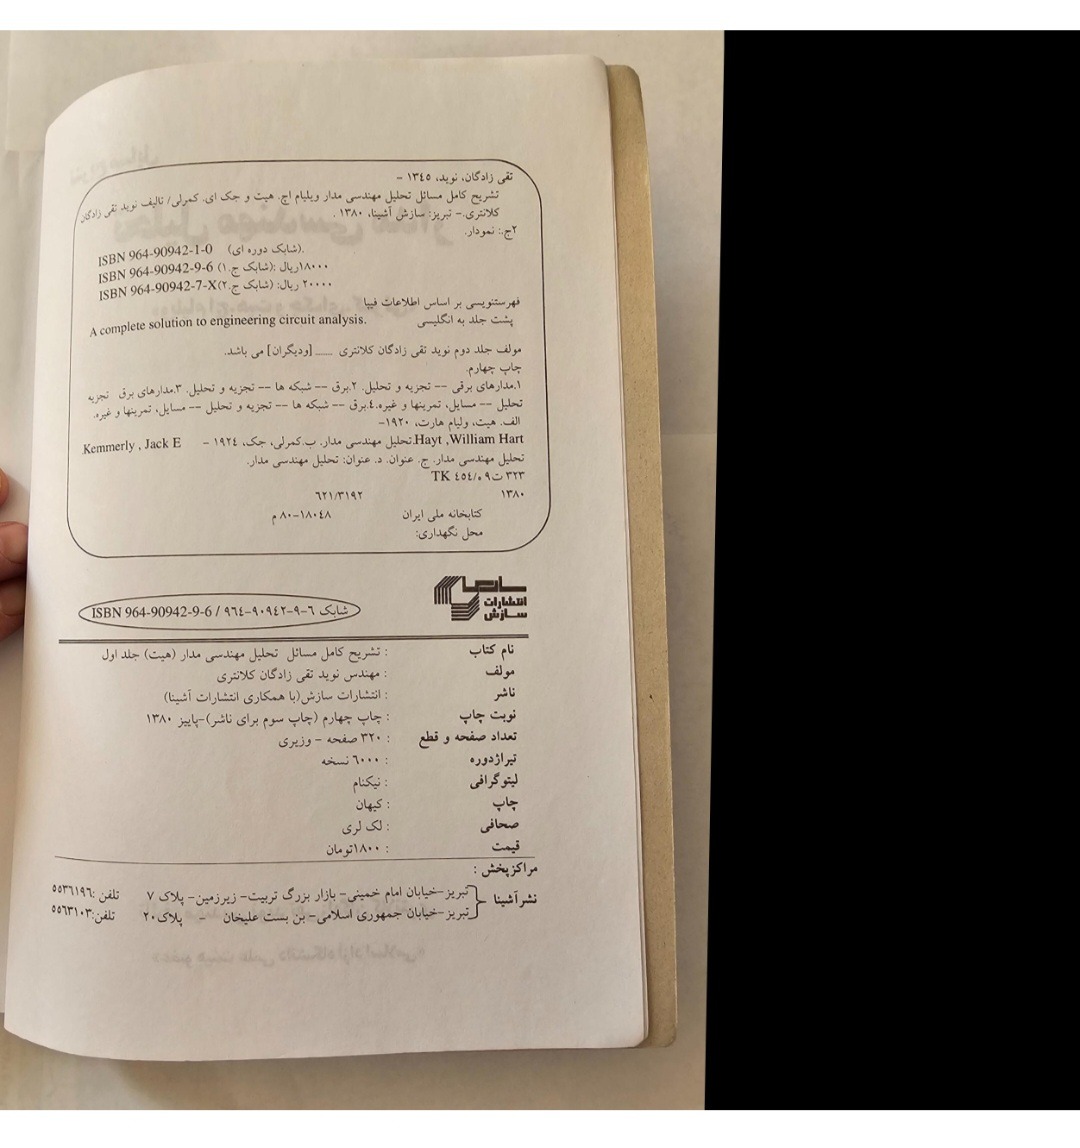 تقی زادگان، نوید، ۱۳٤٥ –
تشریح کامل مسائل تحلیل مهندسی مدار ویلیام اچ. هیت و جک ای. کمرلی/ تالیف نوید تقی زادگان
کلانتری.– تبریز: سازش آشینا، ۱۳۸۰ .
۲ج.: نمودار.
ISBN 964-90942-1-0 (شابک دوره ای).
ISBN 964-90942-9-6 ۱۸۰۰۰ریال :(شابک ج.۱)
ISBN 964-90942-7-X ۲۰۰۰۰ ریال: (شابک ج.۲)
فهرستنویسی بر اساس اطلاعات فیبا
پشت جلد به انگلیسی A complete solution to engineering circuit analysis.
مولف جلد دوم نوید تقی زادگان کلانتری ...... [ودیگران] می باشد.
چاپ چهارم.
۱.مدارهای برقی –– تجزیه و تحلیل. ۲.برق –– شبکه ها –– تجزیه و تحلیل. ۳.مدارهای برق تجزیه
تحلیل –– مسایل، تمرینها و غیره.٤.برق –– شبکه ها –– تجزیه و تحلیل –– مسایل، تمرینها و غیره.
الف. هیت، ولیام هارت، ۱۹۲۰–
Hayt ,William Hart.تحلیل مهندسی مدار. ب.کمرلی، جک، ۱۹۲٤ – Kemmerly , Jack E.
تحلیل مهندسی مدار. ج. عنوان. د. عنوان: تحلیل مهندسی مدار.
۳۲۳ ت۹ ۰/٤٥٤ TK
۱۳۸۰ ۶۲۱/۳۱۹۲
کتابخانه ملی ایران ۱۸۰٤۸–۸۰ م
محل نگهداری:
انتشارات
سازش
شابک ٦-۹-۹۰۹٤۲-۹٦٤ / ISBN 964-90942-9-6
نام کتاب : تشریح کامل مسائل تحلیل مهندسی مدار (هیت) جلد اول
مولف : مهندس نوید تقی زادگان کلانتری
ناشر : انتشارات سازش(با همکاری انتشارات آشینا)
نوبت چاپ : چاپ چهارم (چاپ سوم برای ناشر)–پاییز ۱۳۸۰
تعداد صفحه و قطع : ۳۲۰ صفحه – وزیری
تیراژدوره : ٦۰۰۰ نسخه
لیتوگرافی : نیکنام
چاپ : کیهان
صحافی : لک لری
قیمت : ۱۸۰۰تومان
مراکزپخش :
نشرآشینا
تبریز–خیابان امام خمینی– بازار بزرگ تربیت– زیرزمین– پلاک ۷ تلفن :۵۵۳٦۱۹٦
تبریز–خیابان جمهوری اسلامی– بن بست علیخان – پلاک۲۰ تلفن:۵۵٦۳۱۰۳